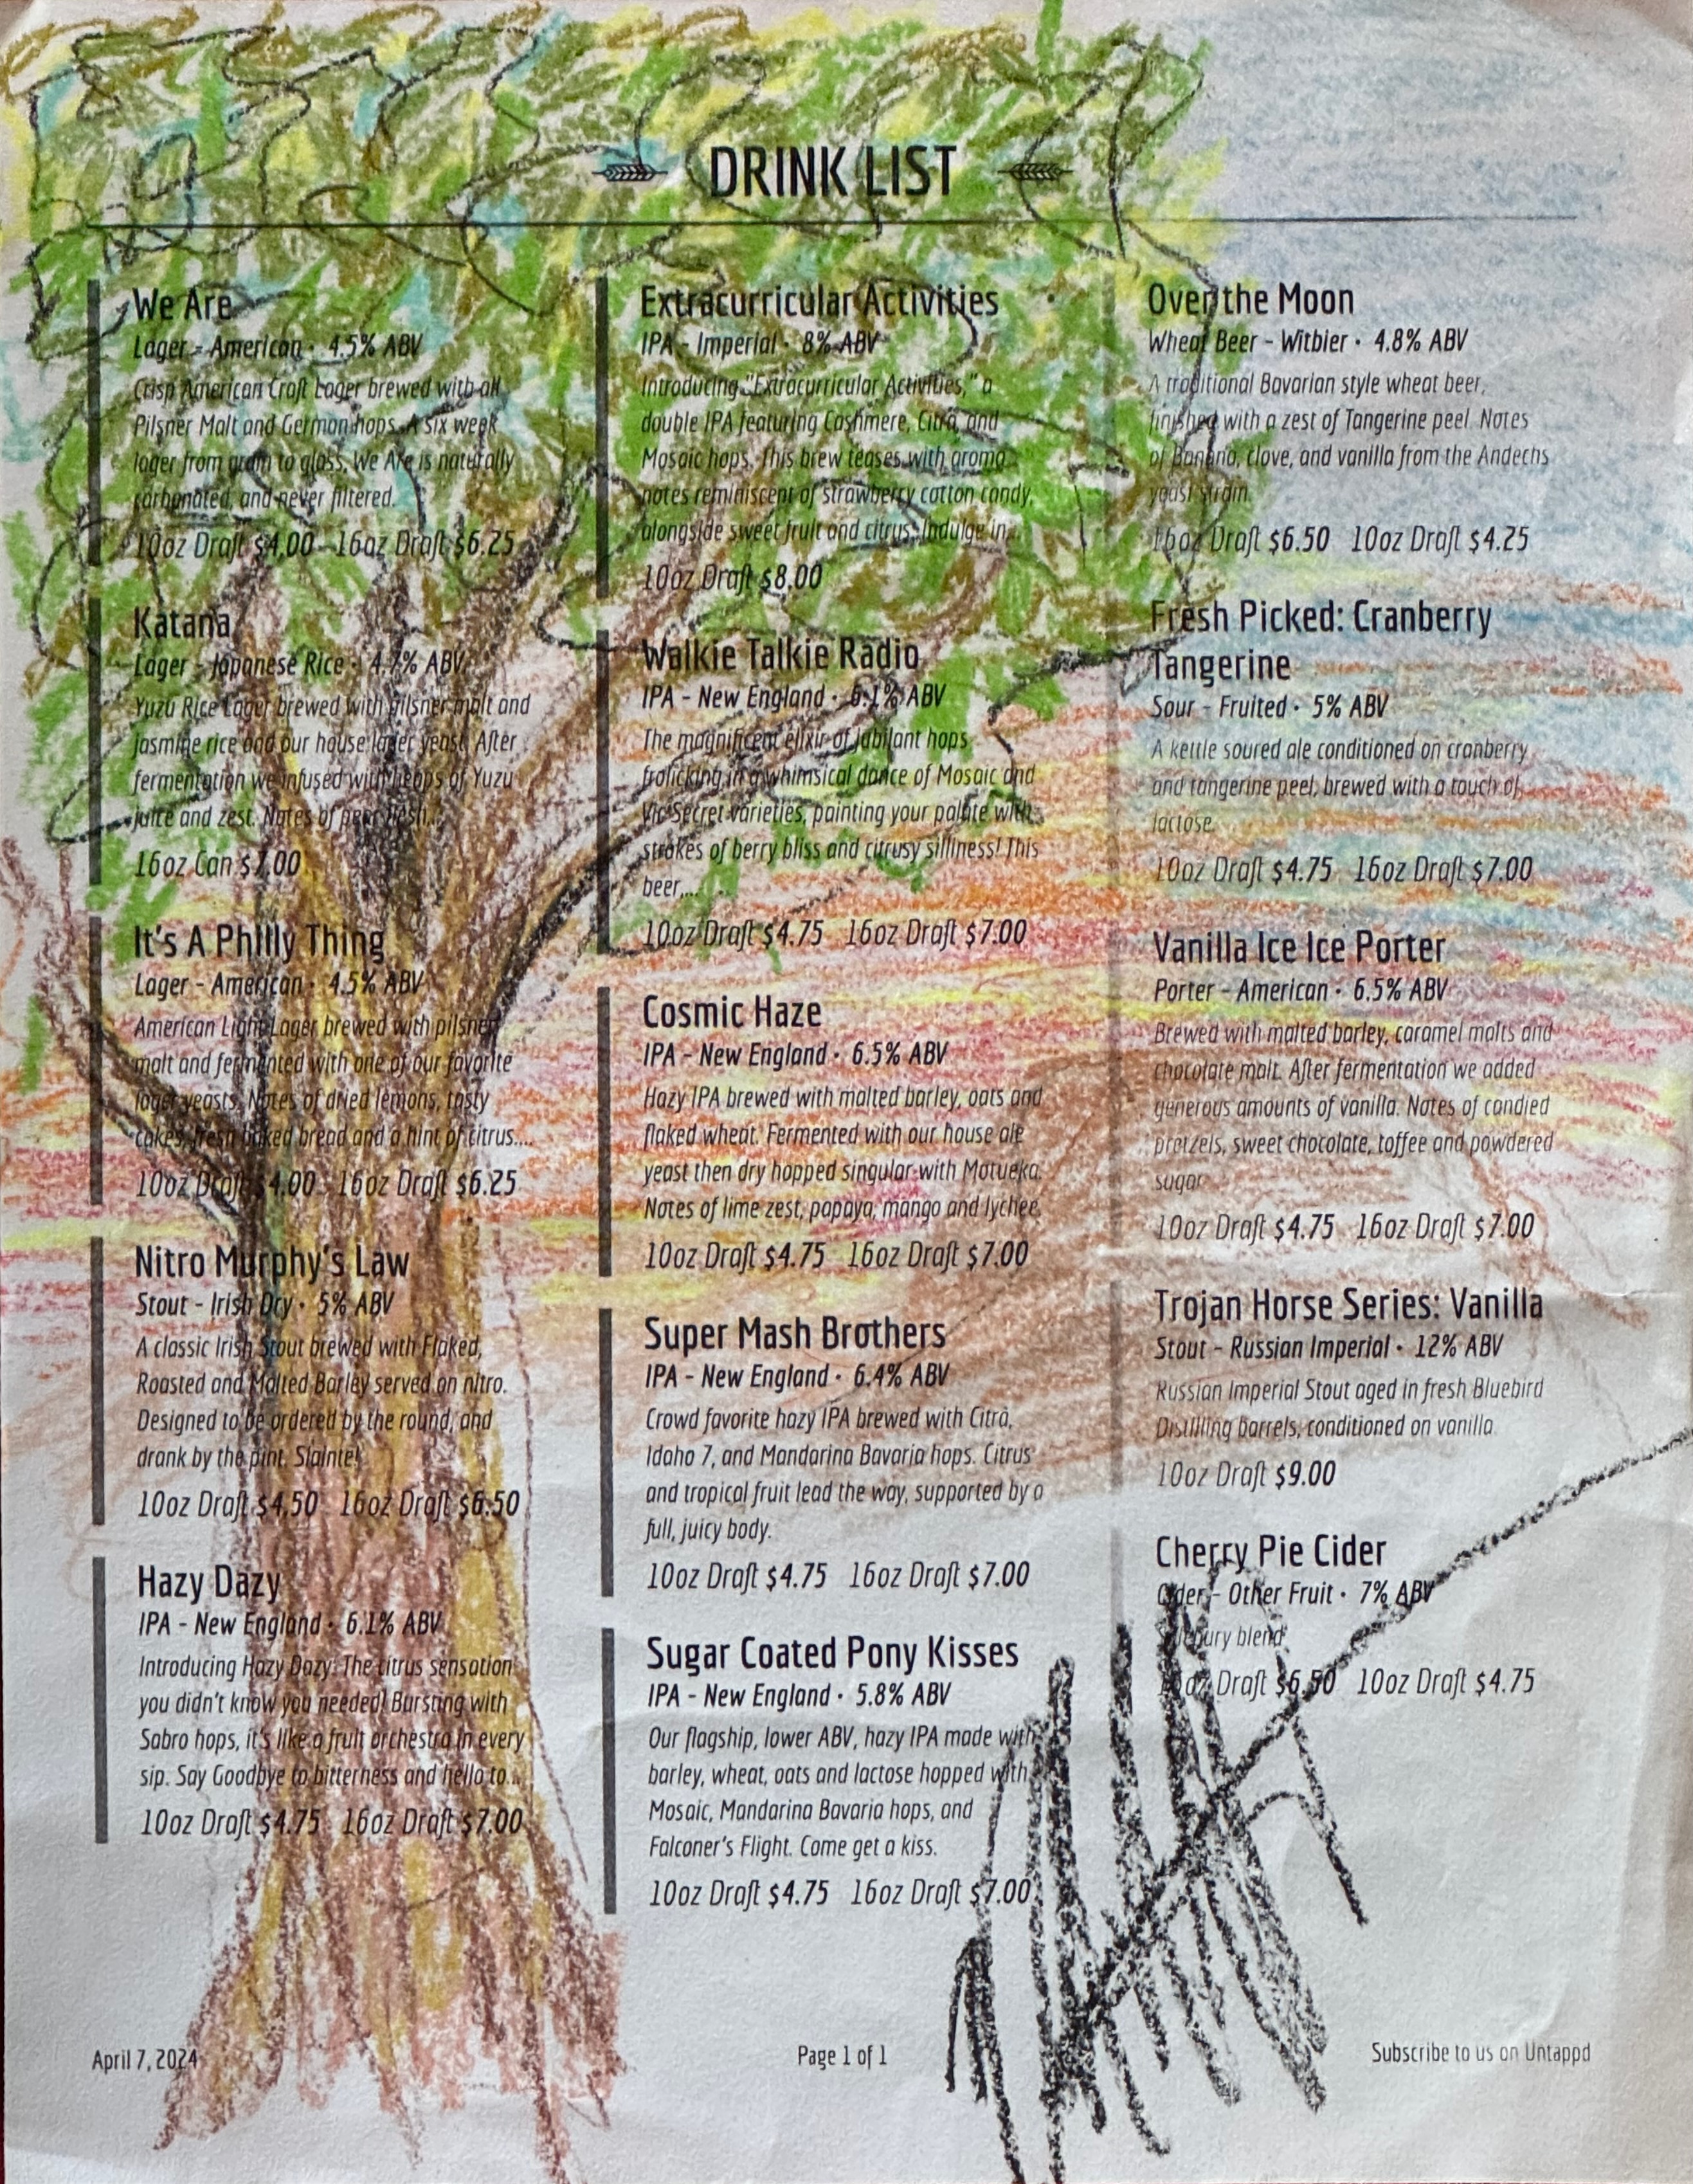 DRINK LIST
We Are
Lager - American • 4.5% ABV
Crisp American Craft Lager brewed with all
Pilsner Malt and German hops. A six week
lager from grain to glass, We Are is naturally
carbonated, and never filtered.
10oz Draft $4.00 16oz Draft $6.25
Katana
Lager - Japanese Rice • 4.7% ABV
Yuzu Rice Lager brewed with pilsner malt and
jasmine rice and our house lager yeast. After
fermentation we infused with heaps of Yuzu
juice and zest. Notes of pear flesh...
16oz Can $7.00
It's A Philly Thing
Lager - American • 4.5% ABV
American Light Lager brewed with pilsner
malt and fermented with one of our favorite
lager yeasts. Notes of dried lemons, tasty
cakes, fresh baked bread and a hint of citrus....
10oz Draft $4.00 16oz Draft $6.25
Nitro Murphy's Law
Stout - Irish Dry • 5% ABV
A classic Irish Stout brewed with Flaked,
Roasted and Malted Barley served on nitro.
Designed to be ordered by the round, and
drank by the pint. Slainte!
10oz Draft $4.50 16oz Draft $6.50
Hazy Dazy
IPA - New England • 6.1% ABV
Introducing Hazy Dazy: The citrus sensation
you didn't know you needed! Bursting with
Sabro hops, it's like a fruit orchestra in every
sip. Say Goodbye to bitterness and hello to...
10oz Draft $4.75 16oz Draft $7.00
Extracurricular Activities
IPA - Imperial • 8% ABV
Introducing "Extracurricular Activities," a
double IPA featuring Cashmere, Citra, and
Mosaic hops. This brew teases with aroma
notes reminiscent of strawberry cotton candy,
alongside sweet fruit and citrus. Indulge in...
10oz Draft $8.00
Walkie Talkie Radio
IPA - New England • 6.1% ABV
The magnificent elixir of jubilant hops
frolicking in a whimsical dance of Mosaic and
Vic Secret varieties, painting your palate with
strokes of berry bliss and citrusy silliness! This
beer,...
10oz Draft $4.75 16oz Draft $7.00
Cosmic Haze
IPA - New England • 6.5% ABV
Hazy IPA brewed with malted barley, oats and
flaked wheat. Fermented with our house ale
yeast then dry hopped singular with Motueka.
Notes of lime zest, papaya, mango and lychee.
10oz Draft $4.75 16oz Draft $7.00
Super Mash Brothers
IPA - New England • 6.4% ABV
Crowd favorite hazy IPA brewed with Citra,
Idaho 7, and Mandarina Bavaria hops. Citrus
and tropical fruit lead the way, supported by a
full, juicy body.
10oz Draft $4.75 16oz Draft $7.00
Sugar Coated Pony Kisses
IPA - New England • 5.8% ABV
Our flagship, lower ABV, hazy IPA made with
barley, wheat, oats and lactose hopped with
Mosaic, Mandarina Bavaria hops, and
Falconer's Flight. Come get a kiss.
10oz Draft $4.75 16oz Draft $7.00
Over the Moon
Wheat Beer - Witbier • 4.8% ABV
A traditional Bavarian style wheat beer,
finished with a zest of Tangerine peel. Notes
of Banana, clove, and vanilla from the Andechs
yeast strain.
16oz Draft $6.50 10oz Draft $4.25
Fresh Picked: Cranberry
Tangerine
Sour - Fruited • 5% ABV
A kettle soured ale conditioned on cranberry
and tangerine peel, brewed with a touch of
lactose.
10oz Draft $4.75 16oz Draft $7.00
Vanilla Ice Ice Porter
Porter - American • 6.5% ABV
Brewed with malted barley, caramel malts and
chocolate malt. After fermentation we added
generous amounts of vanilla. Notes of candied
pretzels, sweet chocolate, toffee and powdered
sugar
10oz Draft $4.75 16oz Draft $7.00
Trojan Horse Series: Vanilla
Stout - Russian Imperial • 12% ABV
Russian Imperial Stout aged in fresh Bluebird
Distilling barrels, conditioned on vanilla
10oz Draft $9.00
Cherry Pie Cider
Cider - Other Fruit • 7% ABV
blend
Draft $6.50 10oz Draft $4.75
April 7, 2024
Page 1 of 1
Subscribe to us on Untappd